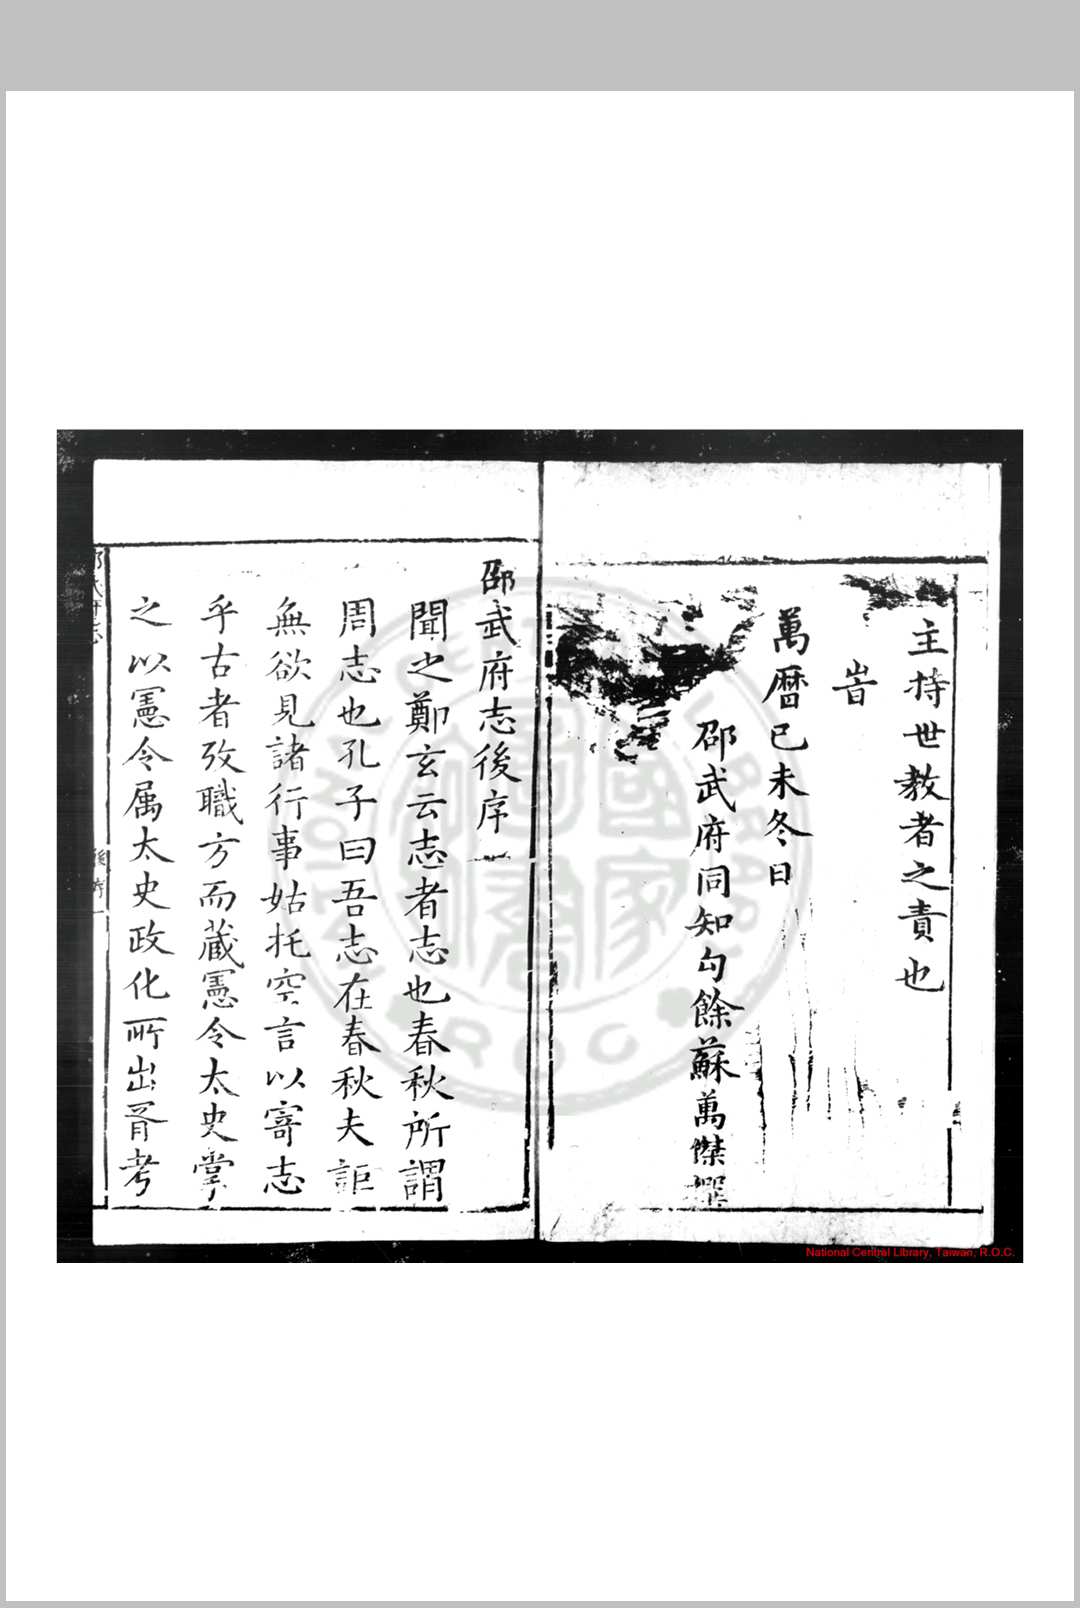 主持世教者之責也
旹
萬曆己未冬日
邵武府同知勾餘蘇萬傑撰
邵武府志後序
聞之鄭玄云志者志也春秋所謂
周志也孔子曰吾志在春秋夫詎
無欲見諸行事姑托空言以寄志
乎古者攷職方而蔵憲令太史掌
之以憲令属太史政化所出胥考
後序一
National Central Library, Taiwan, R.O.C.